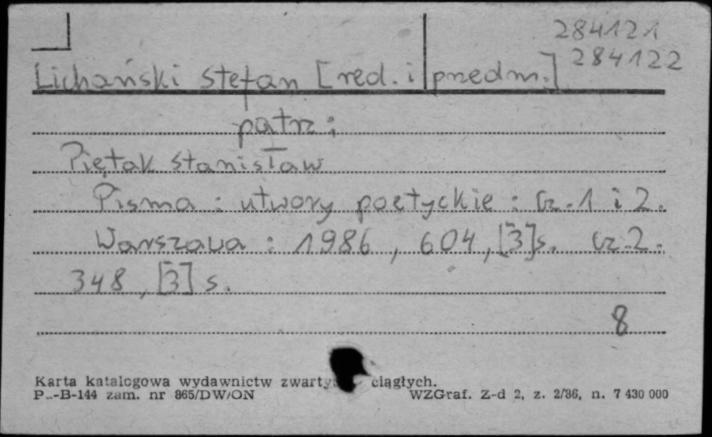 284121
284122
Lichański Stefan [red. i przedm.]
patrz:
Piętak Stanisław
Pisma : utwory poetyckie : Cz. 1 i 2.
Warszawa : 1986, 604, [3] s. cz. 2.
348, [3] s.
8
Karta katalogowa wydawnictw ciągłych.
P..-B-144 zam. nr 865/DW/ON WZGraf. Z-d 2, z. 2/86, n. 7 430 000